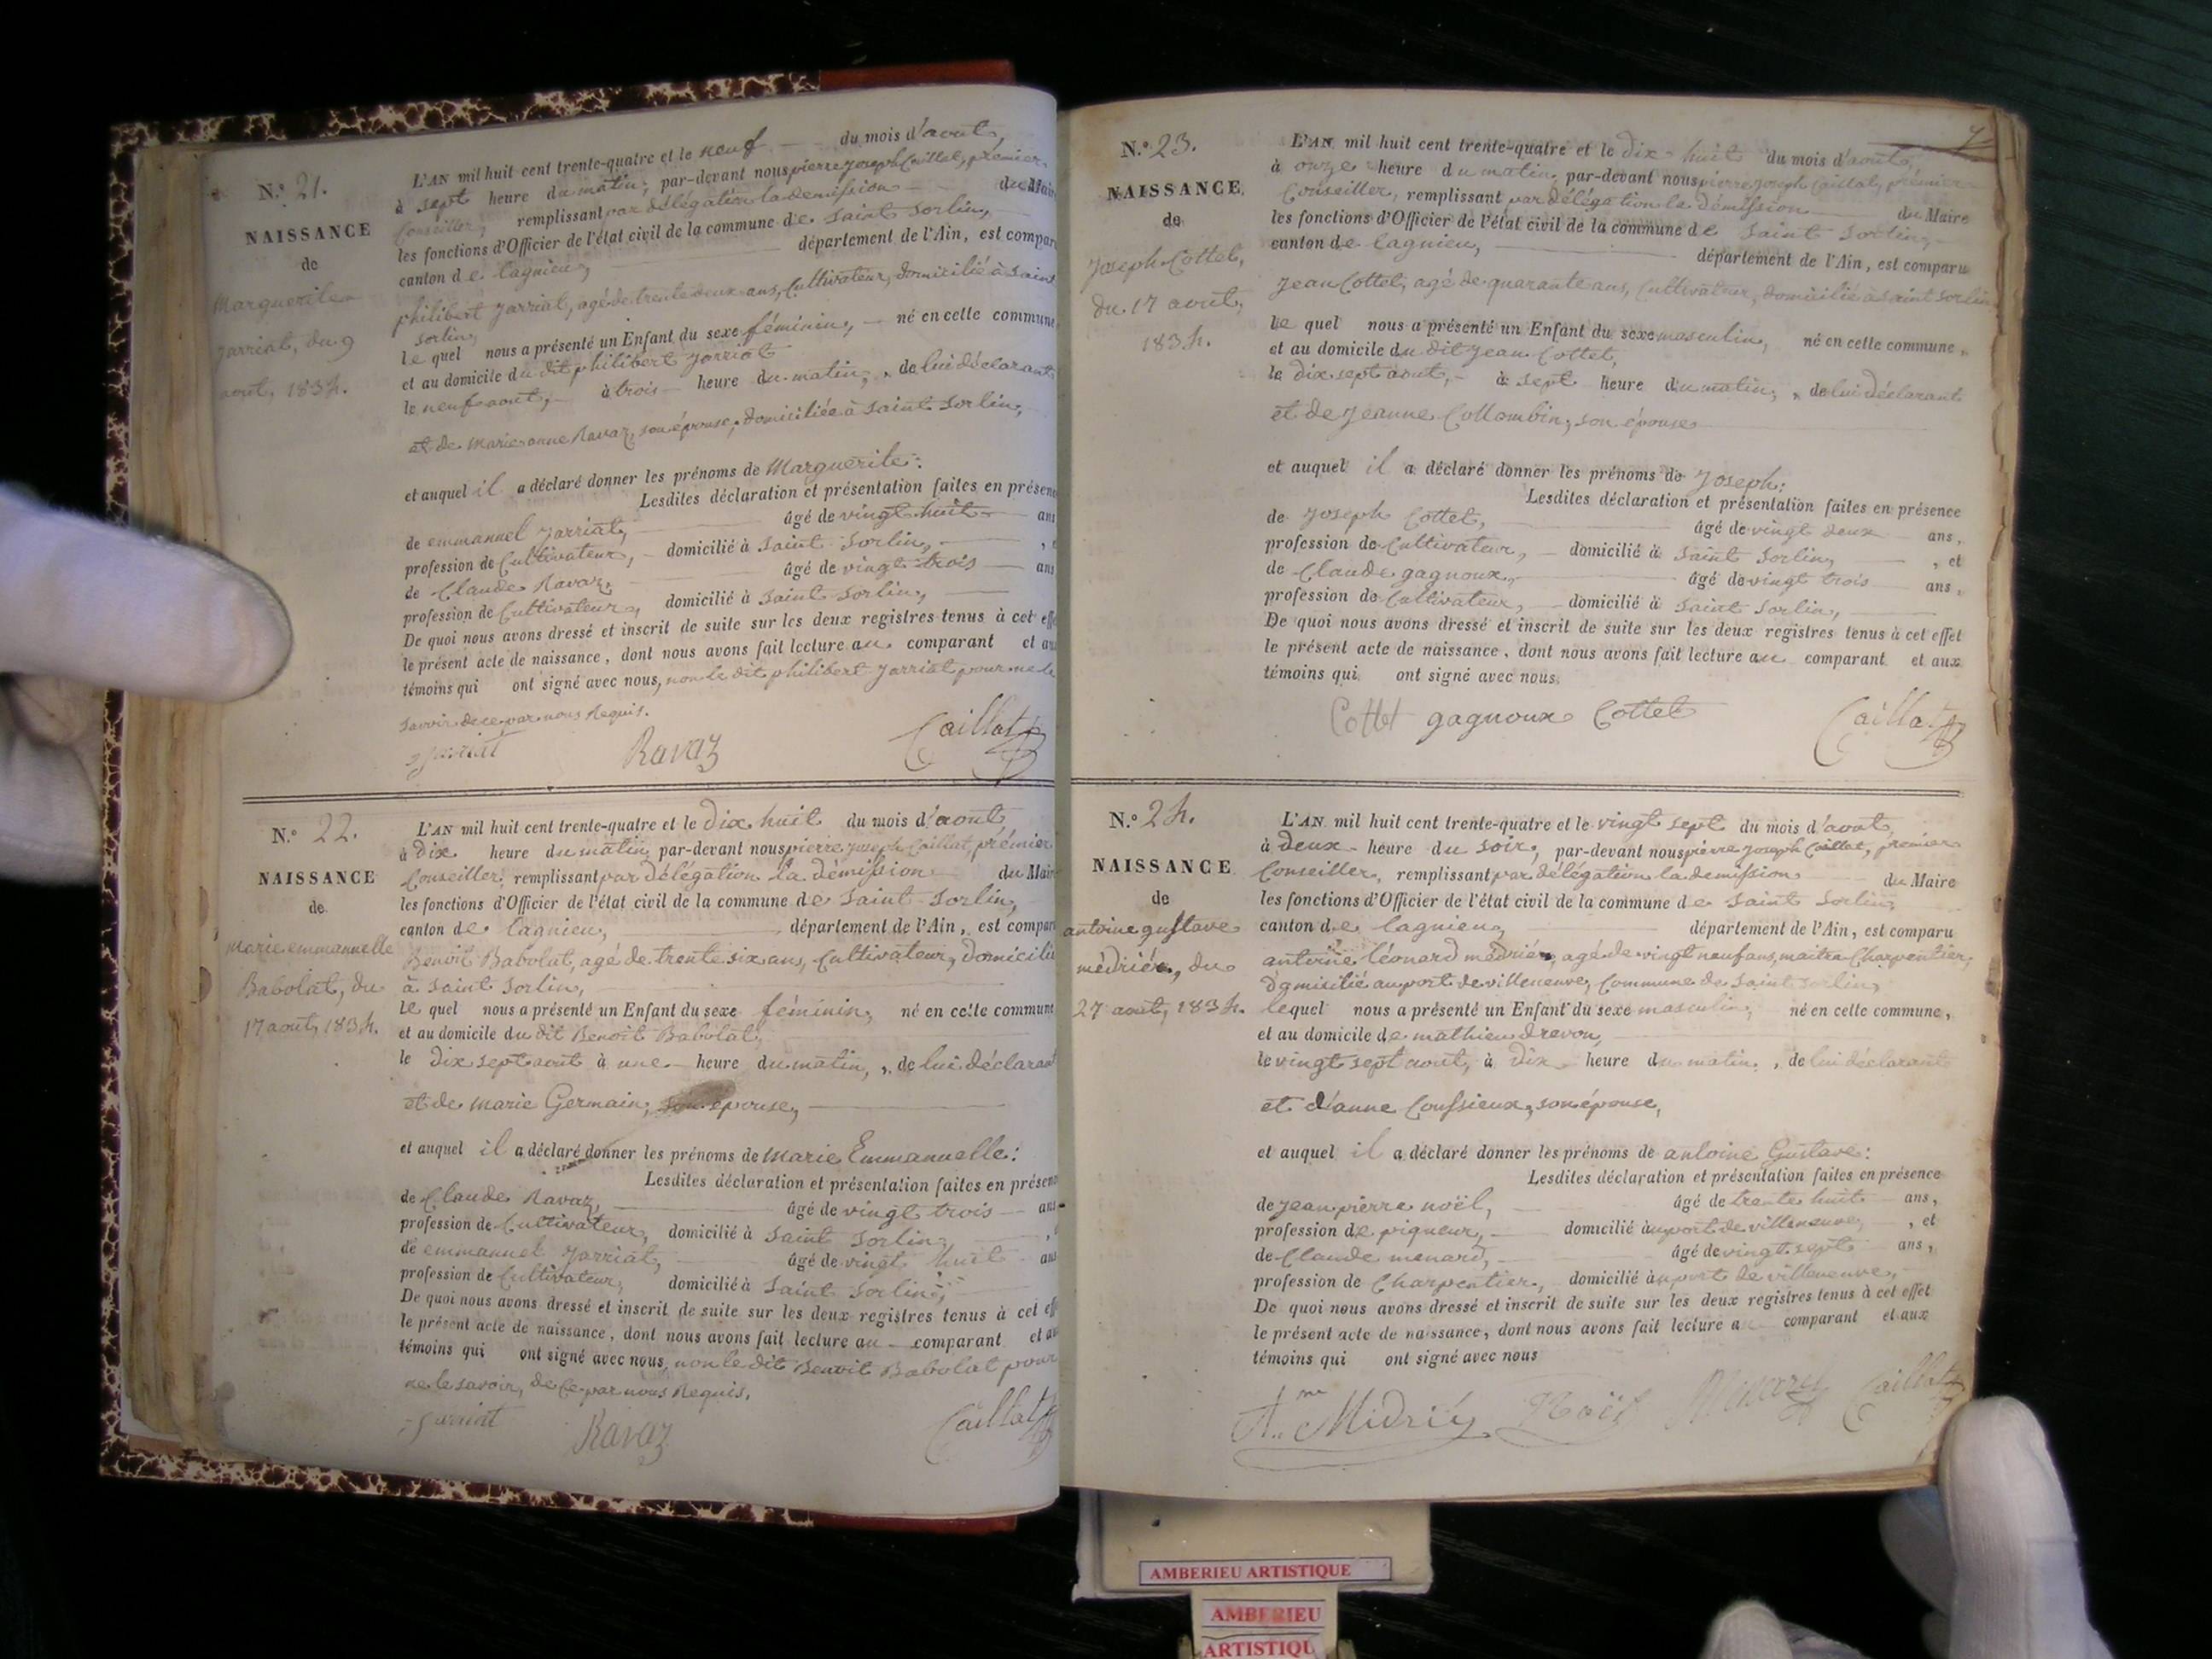 N.º 21.
NAISSANCE
de
Marguerite
Jarriat, du 9
aout, 1834.
L'AN mil huit cent trente-quatre et le neuf du mois d'aout,
à sept heure du matin, par-devant nous pierre Joseph Caillat, prémier
Conseiller, remplissant par délégation la demission du Maire
les fonctions d'Officier de l'état civil de la commune de Saint Sorlin,
canton de Lagnieu, département de l'Ain, est compar
philibert Jarriat, agé de trente deux ans, Cultivateur, domicilié à Saint
Sorlin,
le quel nous a présenté un Enfant du sexe féminin, né en cette commune
et au domicile du dit philibert Jarriat
le neuf aout, à trois heure du matin, de lui déclarant
et de Marie anne Ravaz, son épouse, domiciliée à Saint Sorlin,
et auquel il a déclaré donner les prénoms de Marguerite:
Lesdites déclaration et présentation faites en présen
de emmanuel Jarriat, âgé de vingt huit ans
profession de Cultivateur, domicilié à Saint Sorlin,
de Claude Ravaz, âgé de vingt trois ans
profession de Cultivateur, domicilié à Saint Sorlin,
De quoi nous avons dressé et inscrit de suite sur les deux registres tenus à cet eff
le présent acte de naissance, dont nous avons fait lecture au comparant et au
témoins qui ont signé avec nous, non le dit philibert Jarriat pour ne le
savoir de ce par nous Requis.
Jarriat Ravaz Caillat
N.º 22.
NAISSANCE
de
Marie emmannuelle
Babolat, du
17 aout, 1834.
L'AN mil huit cent trente-quatre et le dix huit du mois d'aout
à dix heure du matin par-devant nous pierre Joseph Caillat, prémier
Conseiller, remplissant par délégation la démission du Mair
les fonctions d'Officier de l'état civil de la commune de Saint Sorlin,
canton de Lagnieu, département de l'Ain, est compar
Benoit Babolat, agé de trente six ans, Cultivateur, domicilié
à Saint Sorlin,
le quel nous a présenté un Enfant du sexe féminin, né en cette commune
et au domicile du dit Benoit Babolat,
le dix sept aout à une heure du matin, de lui déclarant
et de Marie Germain, son épouse,
et auquel il a déclaré donner les prénoms de Marie Emmanuelle:
Lesdites déclaration et présentation faites en présen
de Claude Ravaz, âgé de vingt trois ans
profession de Cultivateur, domicilié à Saint Sorlin,
de emmanuel Jarriat, âgé de vingt huit ans
profession de Cultivateur, domicilié à Saint Sorlin,
De quoi nous avons dressé et inscrit de suite sur les deux registres tenus à cet eff
le présent acte de naissance, dont nous avons fait lecture au comparant et au
témoins qui ont signé avec nous, non le dit Benoit Babolat pour
ne le savoir, de Ce par nous Requis.
Jarriat Ravaz Caillat
7
N.º 23.
NAISSANCE
de
Joseph Cottet,
du 17 aout,
1834.
L'AN mil huit cent trente-quatre et le dix huit du mois d'aout,
à onze heure du matin, par-devant nous pierre Joseph Caillat, prémier
Conseiller, remplissant par délégation la démission du Maire
les fonctions d'Officier de l'état civil de la commune de Saint Sorlin,
canton de Lagnieu, département de l'Ain, est comparu
Jean Cottet, agé de quarante ans, Cultivateur, domicilié à Saint Sorlin
le quel nous a présenté un Enfant du sexe masculin, né en cette commune,
et au domicile du dit Jean Cottet,
le dix sept aout, à sept heure du matin, de lui déclarant
et de Jeanne Collombin, son épouse
et auquel il a déclaré donner les prénoms de Joseph:
Lesdites déclaration et présentation faites en présence
de Joseph Cottet, âgé de vingt deux ans,
profession de Cultivateur, domicilié à Saint Sorlin, , et
de Claude gagnoux, âgé de vingt trois ans,
profession de Cultivateur, domicilié à Saint Sorlin,
De quoi nous avons dressé et inscrit de suite sur les deux registres tenus à cet effet
le présent acte de naissance, dont nous avons fait lecture au comparant et aux
témoins qui ont signé avec nous.
Cottet gagnoux Cottet Caillat
N.º 24.
NAISSANCE
de
antoine gustave
médrier, du
27 aout, 1834.
L'AN mil huit cent trente-quatre et le vingt sept du mois d'aout,
à deux heure du soir, par-devant nous pierre Joseph Caillat, prémier
Conseiller, remplissant par délégation la demission du Maire
les fonctions d'Officier de l'état civil de la commune de Saint Sorlin,
canton de Lagnieu, département de l'Ain, est comparu
antoine léonard médrier, agé de vingt neuf ans, maitre Charpentier,
domicilié au port de villeneuve, Commune de Saint Sorlin,
lequel nous a présenté un Enfant du sexe masculin, né en cette commune,
et au domicile de mathieu drevon,
le vingt sept aout, à dix heure du matin, de lui déclarant
et d'anne Coussieux, son épouse,
et auquel il a déclaré donner les prénoms de antoine Gustave:
Lesdites déclaration et présentation faites en présence
de Jean pierre noël, âgé de trente huit ans,
profession de piqueur, domicilié au port de villeneuve, , et
de Claude menard, âgé de vingt sept ans,
profession de Charpentier, domicilié au port de villeneuve,
De quoi nous avons dressé et inscrit de suite sur les deux registres tenus à cet effet
le présent acte de naissance, dont nous avons fait lecture a comparant et aux
témoins qui ont signé avec nous
Noël Menard Caillat
AMBERIEU ARTISTIQUE
AMBERIEU
ARTISTIQU